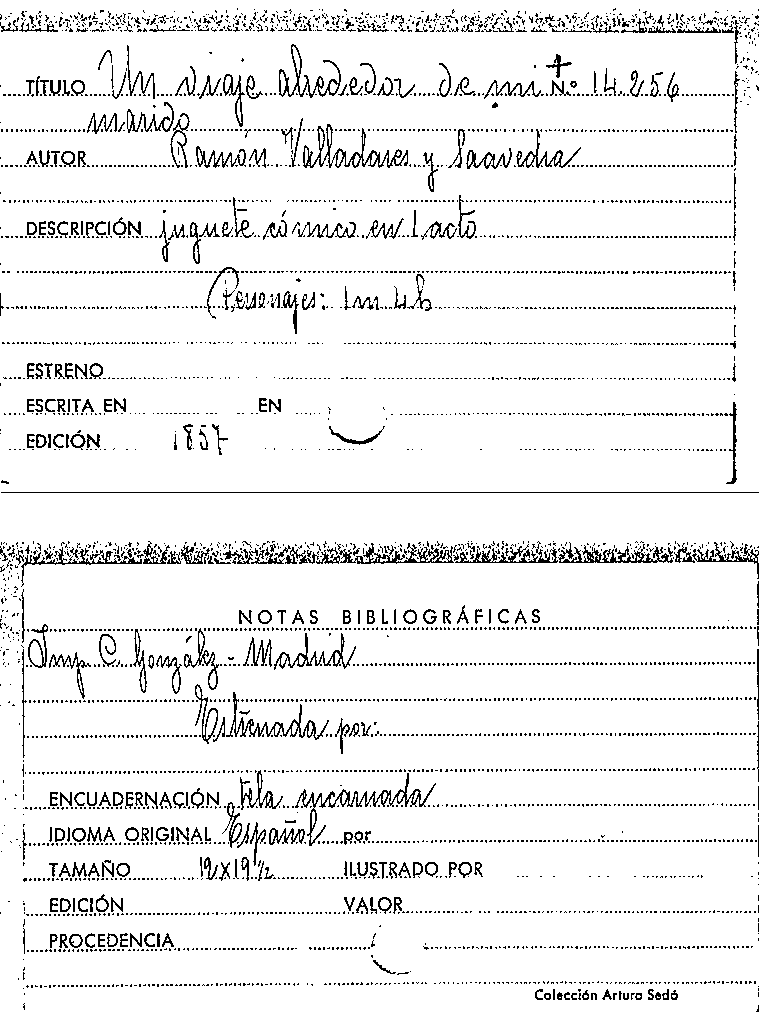 TÍTULO Un viaje alrededor de mi N.º 14.256
marido
AUTOR Ramón Valladares y Saavedra
DESCRIPCIÓN juguete cómico en 1 acto
(Personajes: 1m 4h
ESTRENO
ESCRITA EN EN
EDICIÓN 1857
NOTAS BIBLIOGRÁFICAS
Imp. C. González - Madrid
Estrenada por:
ENCUADERNACIÓN tela encarnada
IDIOMA ORIGINAL Español por
TAMAÑO 12x19 1/2 ILUSTRADO POR
EDICIÓN VALOR
PROCEDENCIA
Colección Arturo Sedó